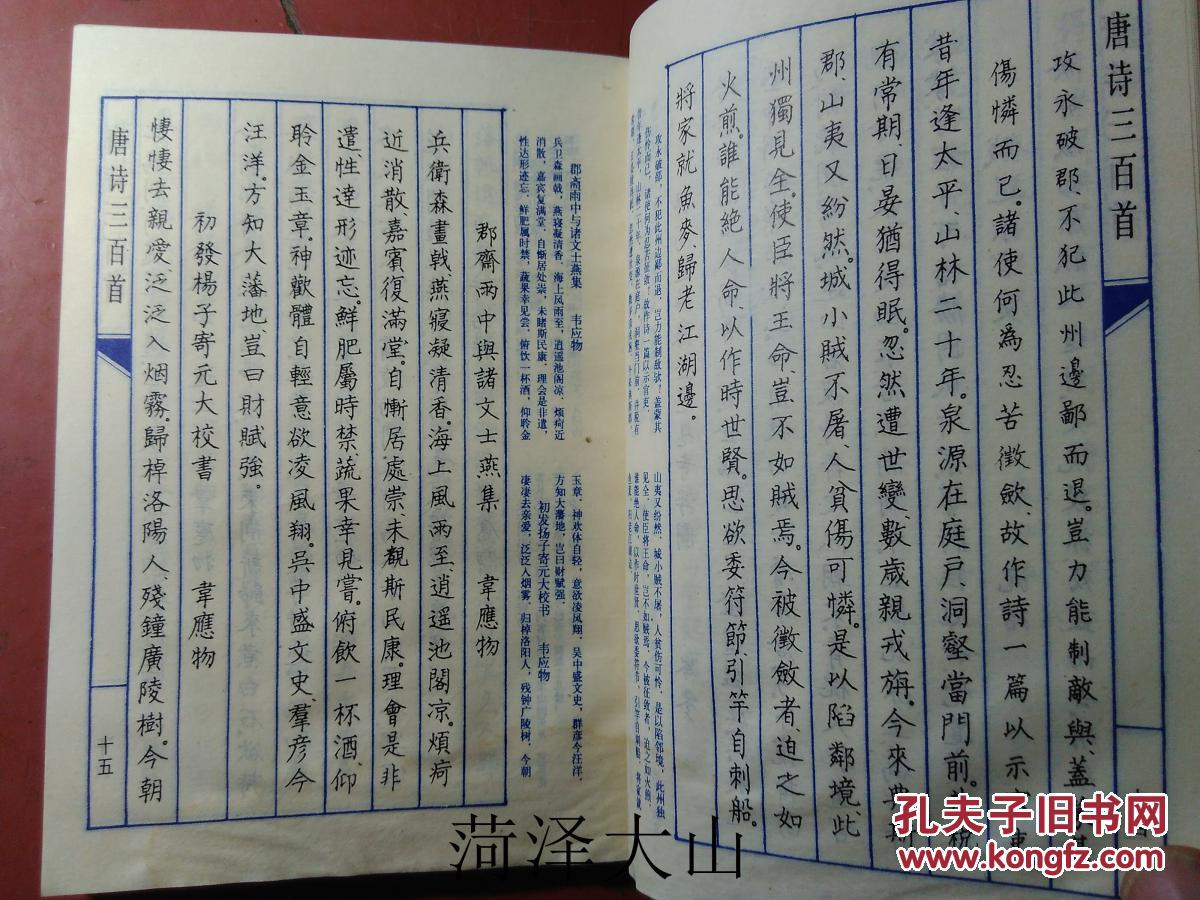 唐诗三百首
攻永破郡、不犯此州邊鄙而退。豈力能制敵與、蓋
傷憐而已。諸使何為忍苦徵斂、故作詩一篇以示
昔年逢太平、山林二十年。泉源在庭戶、洞壑當門前。
有常期、日晏猶得眠。忽然遭世變、數歲親戎旃。今來典斯
郡、山夷又紛然。城小賊不屠、人貧傷可憐。是以陷鄰境、此
州獨見全。使臣將王命、豈不如賊焉。今被徵斂者、迫之如
火煎。誰能絕人命、以作時世賢。思欲委符節、引竿自刺船。
將家就魚麥、歸老江湖邊。
攻永破邵，不犯此州边鄙而退，岂力能制敌欤？盖蒙其
伤怜而已，诸使何为忍苦征敛！故作诗一篇以示官吏。
山夷又纷然，城小贼不屠，人贫伤可怜，是以陷邻境，此州独
见全，使臣将王命，岂不如贼焉，今被征敛者，迫之如火煎，
谁能绝人命，以作时世贤，思欲委符节，引竿自刺船，将家就
郡斋雨中与诸文士燕集 韦应物
兵卫森画戟，燕寝凝清香，海上风雨至，逍遥池阁凉，烦疴近
消散，嘉宾复满堂，自惭居处崇，未睹斯民康，理会是非遣，
性达形迹忘，鲜肥属时禁，蔬果幸见尝，俯饮一杯酒，仰聆金
玉章，神欢体自轻，意欲凌风翔，吴中盛文史，群彦今汪洋，
方知大藩地，岂曰财赋强，
初发扬子寄元大校书 韦应物
凄凄去亲爱，泛泛入烟雾，归棹洛阳人，残钟广陵树，今朝
郡齋雨中與諸文士燕集 韋應物
兵衛森畫戟、燕寢凝清香。海上風雨至、逍遥池閣凉。煩疴
近消散、嘉賓復滿堂。自慚居處崇、未覩斯民康。理會是非
遣、性達形迹忘。鮮肥屬時禁、蔬果幸見嘗。俯飲一杯酒、仰
聆金玉章。神歡體自輕、意欲凌風翔。吴中盛文史、羣彦今
汪洋。方知大藩地、豈曰財賦強。
初發楊子寄元大校書 韋應物
悽悽去親愛、泛泛入烟霧。歸棹洛陽人、殘鐘廣陵樹。今朝
唐诗三百首
十五
菏泽大山
孔夫子旧书网
www.kongfz.com